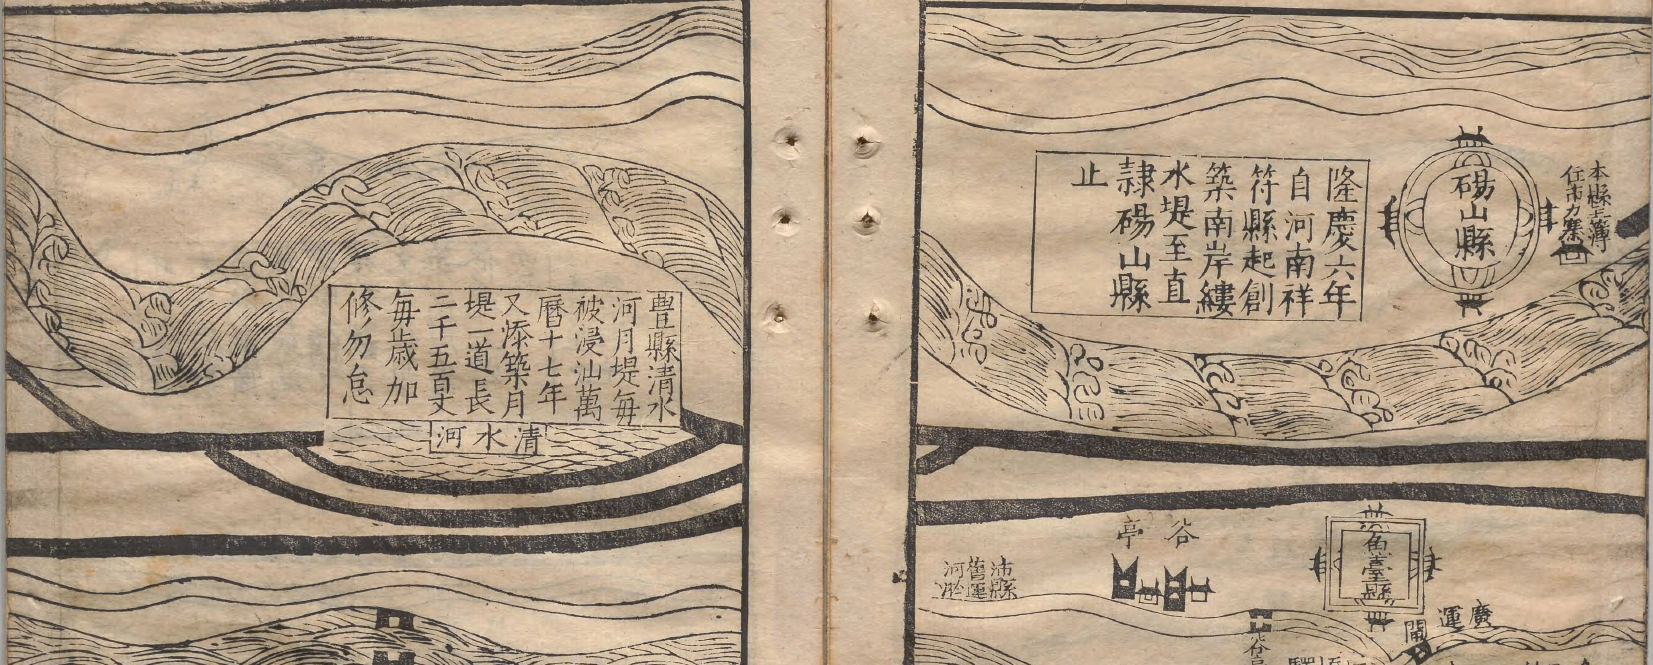 本縣主簿
住市力集
碭山縣
隆慶六年
自河南祥
符縣起創
築南岸縷
水堤至直
隸碭山縣
止
魚臺縣
廣運閘
谷亭
沛縣
舊運
河淤
豊縣清水
河月堤每
被浸汕萬
曆十七年
又添築月
堤一道長
二千五百丈
每歲加
修勿怠
清水河